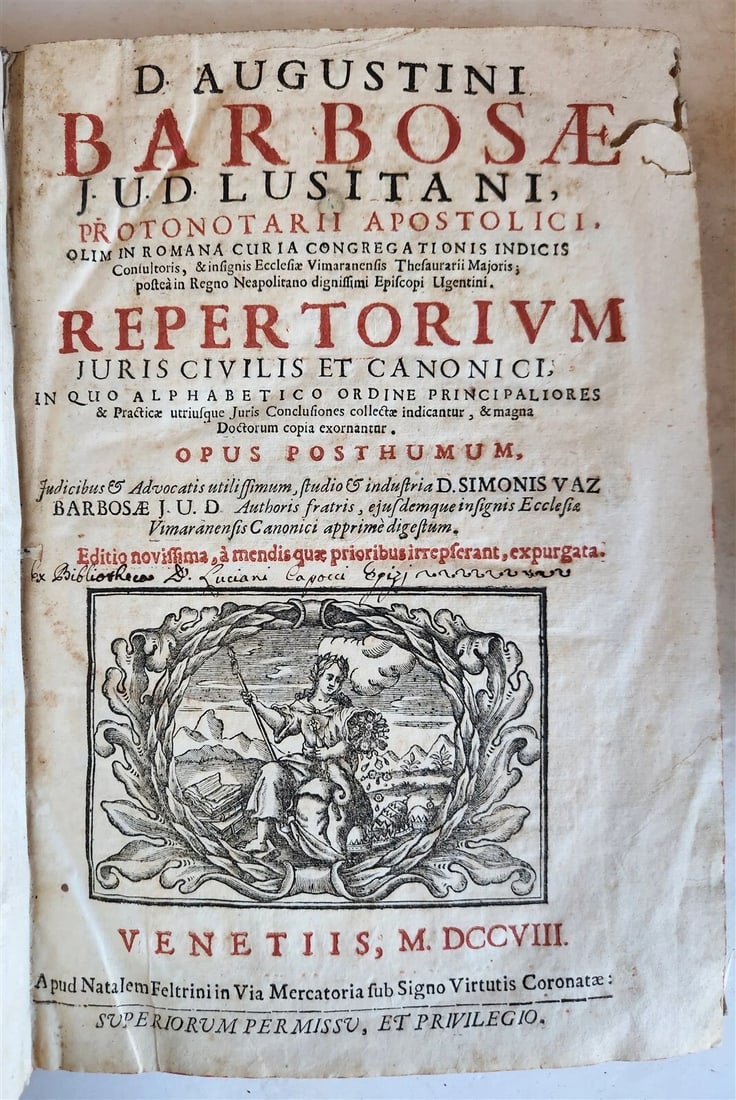 D. AUGUSTINI
BARBOSÆ
J. U. D. LUSITANI,
PROTONOTARII APOSTOLICI.
OLIM IN ROMANA CURIA CONGREGATIONIS INDICIS
Conſultoris, & inſignis Eccleſiæ Vimaranenſis Theſaurarii Majoris;
poſteà in Regno Neapolitano digniſſimi Epiſcopi Ugentini.
REPERTORIVM
JURIS CIVILIS ET CANONICI,
IN QUO ALPHABETICO ORDINE PRINCIPALIORES
& Practicæ utriuſque Juris Concluſiones collectæ indicantur, & magna
Doctorum copia exornantur.
OPUS POSTHUMUM,
Judicibus & Advocatis utiliſſimum, ſtudio & induſtria D. SIMONIS VAZ
BARBOSÆ J. U. D. Authoris fratris, ejuſdemque inſignis Eccleſiæ
Vimaranenſis Canonici apprimè digeſtum.
Editio noviſſima, à mendis quæ prioribus irrepſerant, expurgata.
ex Bibliotheca D. Luciani Capocci
VENETIIS, M. DCCVIII.
Apud Natalem Feltrini in Via Mercatoria ſub Signo Virtutis Coronatæ:
SUPERIORVM PERMISSV, ET PRIVILEGIO.